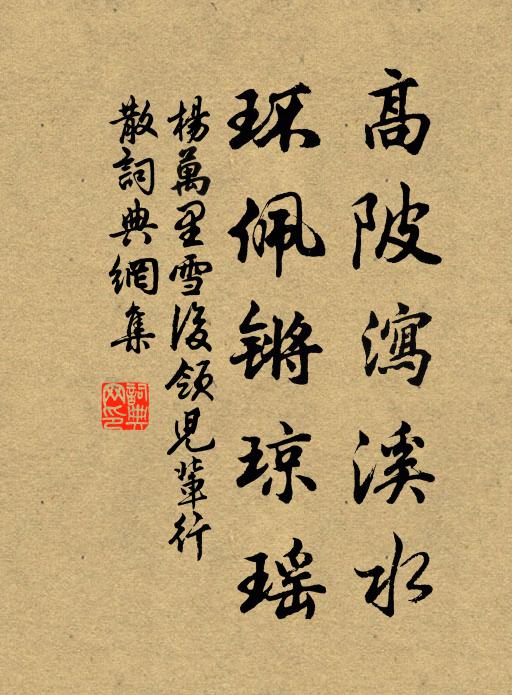 高陂瀉溪水
环佩锵琼瑶
楊萬里雪後領児輩行
散詞典網集
詞典网印